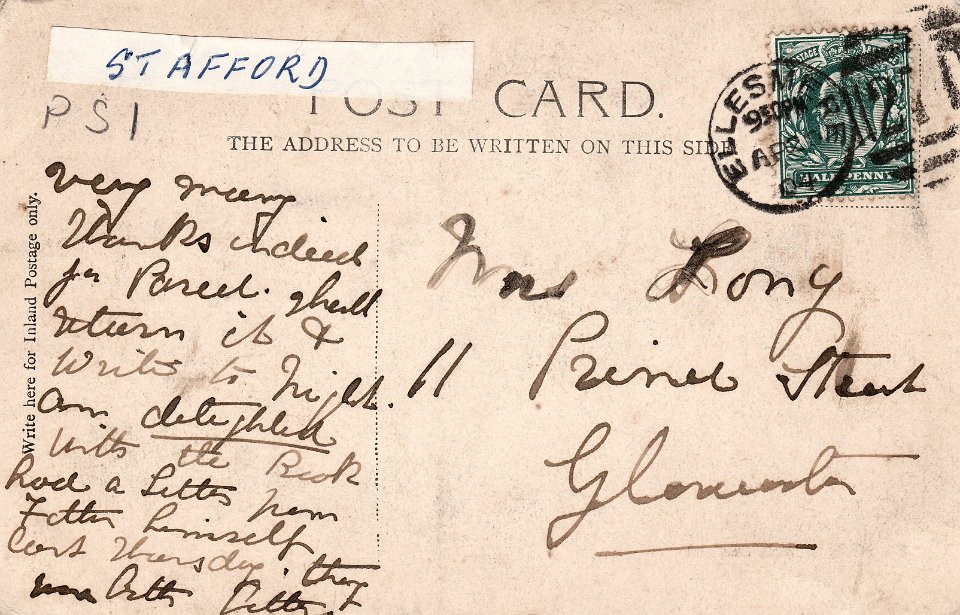 STAFFORD
PS1
POST CARD.
THE ADDRESS TO BE WRITTEN ON THIS SIDE
ELLESMERE
930PM
AP
04
HALFPENNY
Write here for Inland Postage only.
very many
thanks indeed
for Parcel. shall
return it &
write to night.
am delighted
with the Book
had a Letter from
Father himself
last Thursday. they
are both better
Mrs Long
11 Prince Street
Gloucester